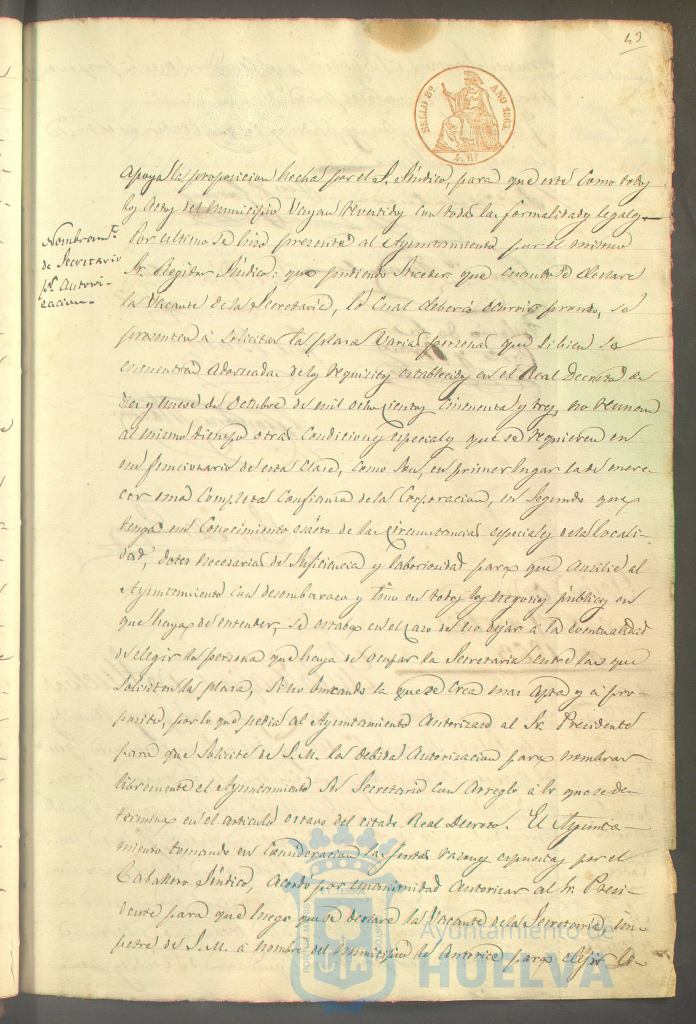 43
SELLO 8º AÑO 1863.
4. Rs
apoya la proposicion hecha por el S. Síndico, para que este como todos
los actos del municipio vayan revestidos con todas las formalidades legales
Nombramto.
de Secretario
pr. Autori-
zacion.
Por ultimo se hizo presente al Ayuntamiento por el mismo
Sr. Regidor Síndico: que pudiendo suceder que cuando se declare
la vacante de la Secretaría, lo cual deberá ocurrir pronto, se
presenten á solicitar la plaza varias personas que si bien se
encuentran adornadas de los requisitos establecidos en el Real Decreto de
diez y nueve de Octubre de mil ochocientos cincuenta y tres, no reunan
al mismo tiempo otras condiciones especiales que se requieren en
un funcionario de esta clase, como son, en primer lugar la de mere-
cer una completa confianza de la Corporacion, en segundo que
tenga un conocimiento exácto de las circunstancias especiales de la locali-
dad, dotes necesarias de suficiencia y laboriosidad para que ausilie al
Ayuntamiento con desembarazo y tino en todos los negocios públicos en
que haya de entender, se estaba en el caso de no dejar á la eventualidad
de elegir la persona que haya de ocupar la Secretaria entre las que
soliciten la plaza, sino buscando la que se crea mas apta y á pro-
posito, por lo que pedia al Ayuntamiento autorizase al Sr. Presidente
para que solicite de S. M. la debida autorizacion para nombrar
libremente el Ayuntamiento su Secretario con arreglo á lo que se de-
termina en el articulo octavo del citado Real Decreto. El Ayunta-
miento tomando en consideracion las justas razones espuestas por el
Caballero Síndico, acordó por unanimidad autorizar al Sr. Presi-
dente para que luego que se declare la vacante de la Secretaria, im-
petre de S. M. á nombre del municipio le autorice para elejir
Ayuntamiento de
HUELVA